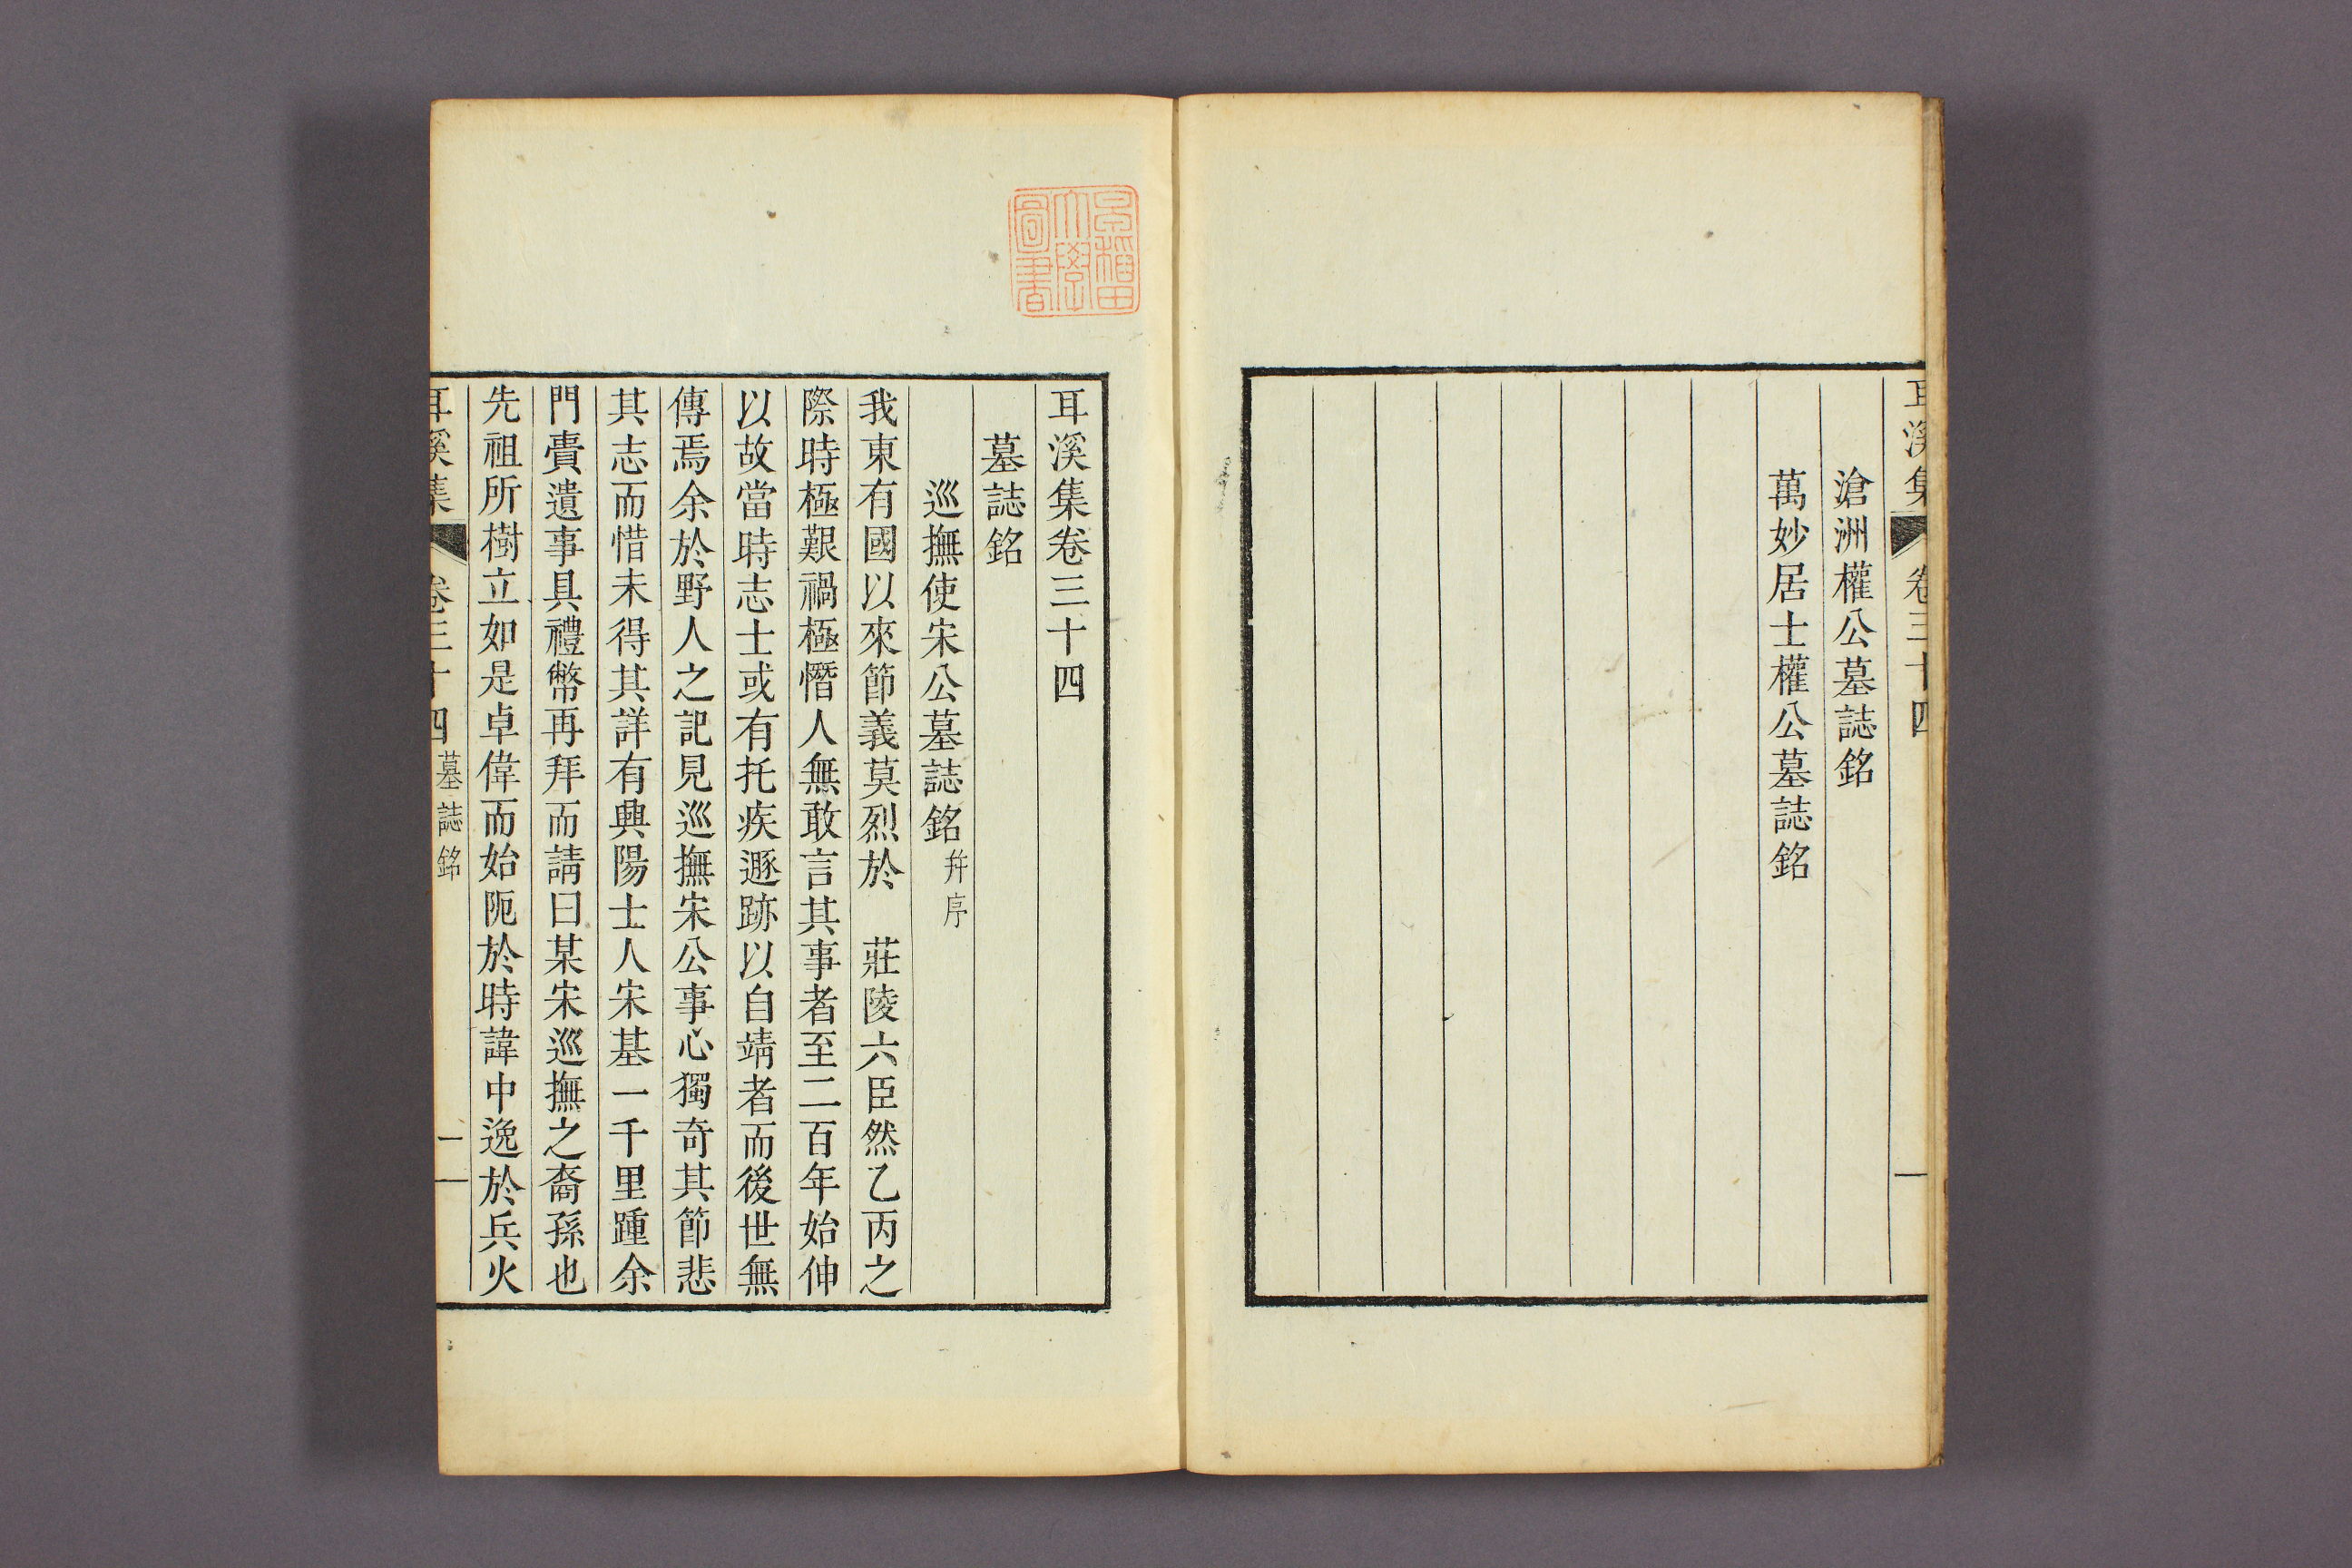 耳溪集 卷三十四 一
滄洲權公墓誌銘
萬妙居士權公墓誌銘
早稻田
大學
圖書
耳溪集卷三十四
墓誌銘
巡撫使宋公墓誌銘幷序
我東有國以來節義莫烈於 莊陵六臣然乙丙之
際時極艱禍極憯人無敢言其事者至二百年始伸
以故當時志士或有托疾遯跡以自靖者而後世無
傳焉余於野人之記見巡撫宋公事心獨奇其節悲
其志而惜未得其詳有興陽士人宋基一千里踵余
門賷遺事具禮幣再拜而請曰某宋巡撫之裔孫也
先祖所樹立如是卓偉而始阨於時諱中逸於兵火
耳溪集 卷三十四 墓誌銘 一